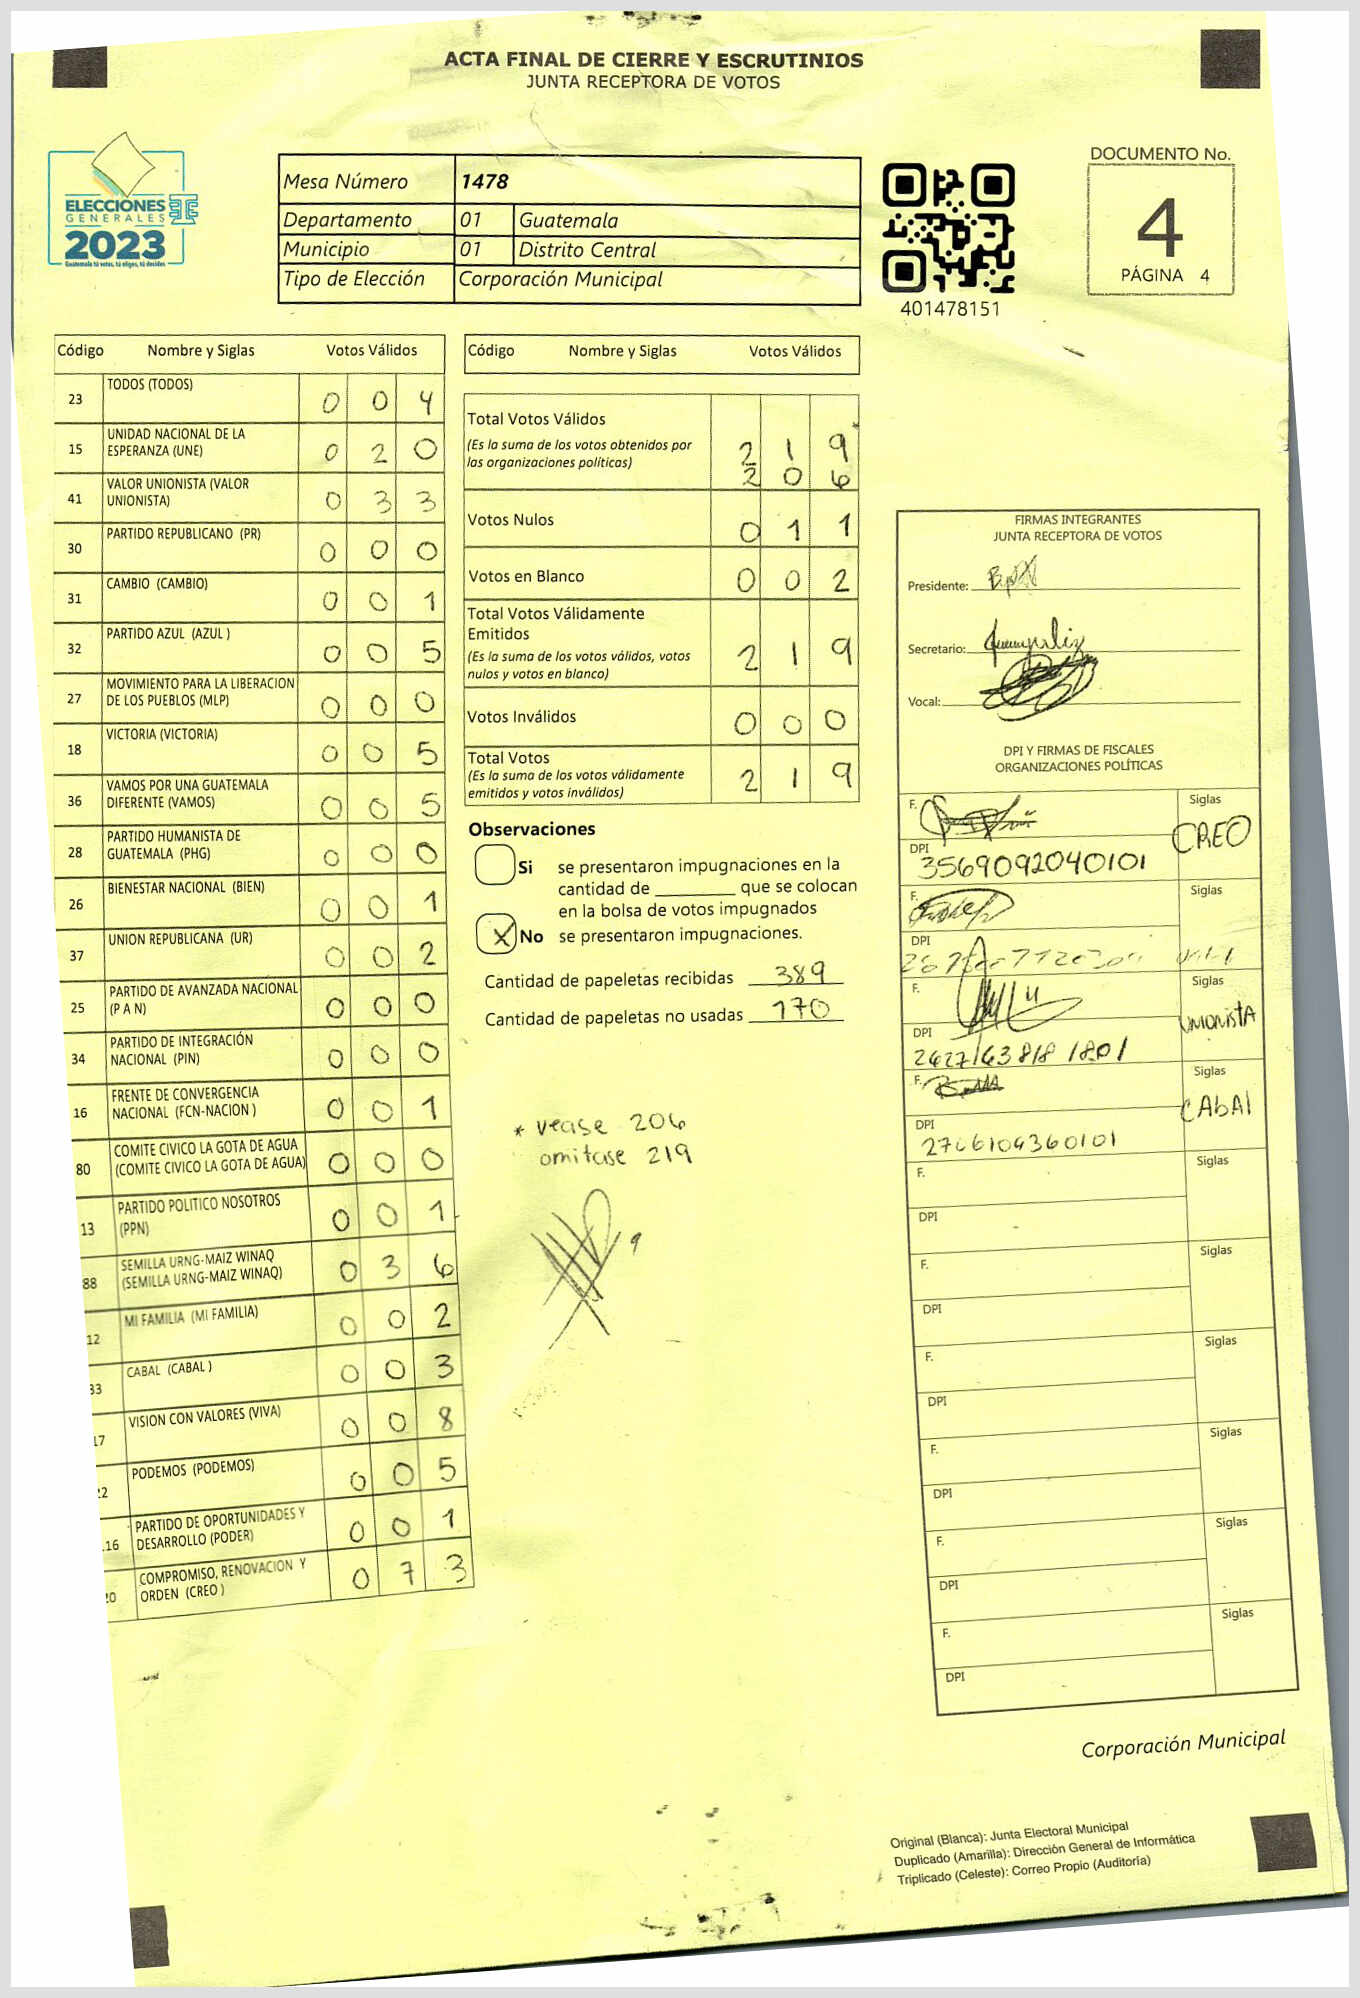 ACTA FINAL DE CIERRE Y ESCRUTINIOS
JUNTA RECEPTORA DE VOTOS
ELECCIONES
GENERALES
2023
Guatemala tú votas, tú eliges, tú decides
Mesa Número 1478
Departamento 01 Guatemala
Municipio 01 Distrito Central
Tipo de Elección Corporación Municipal
401478151
DOCUMENTO No.
4
PÁGINA 4
Código Nombre y Siglas Votos Válidos
23 TODOS (TODOS) 0 0 4
15 UNIDAD NACIONAL DE LA
ESPERANZA (UNE) 0 2 0
41 VALOR UNIONISTA (VALOR
UNIONISTA) 0 3 3
30 PARTIDO REPUBLICANO (PR) 0 0 0
31 CAMBIO (CAMBIO) 0 0 1
32 PARTIDO AZUL (AZUL ) 0 0 5
27 MOVIMIENTO PARA LA LIBERACION
DE LOS PUEBLOS (MLP) 0 0 0
18 VICTORIA (VICTORIA) 0 0 5
36 VAMOS POR UNA GUATEMALA
DIFERENTE (VAMOS) 0 0 5
28 PARTIDO HUMANISTA DE
GUATEMALA (PHG) 0 0 0
26 BIENESTAR NACIONAL (BIEN) 0 0 1
37 UNION REPUBLICANA (UR) 0 0 2
25 PARTIDO DE AVANZADA NACIONAL
(P A N) 0 0 0
34 PARTIDO DE INTEGRACIÓN
NACIONAL (PIN) 0 0 0
16 FRENTE DE CONVERGENCIA
NACIONAL (FCN-NACION ) 0 0 1
80 COMITE CIVICO LA GOTA DE AGUA
(COMITE CIVICO LA GOTA DE AGUA) 0 0 0
13 PARTIDO POLITICO NOSOTROS
(PPN) 0 0 1
88 SEMILLA URNG-MAIZ WINAQ
(SEMILLA URNG-MAIZ WINAQ) 0 3 6
12 MI FAMILIA (MI FAMILIA) 0 0 2
33 CABAL (CABAL ) 0 0 3
17 VISION CON VALORES (VIVA) 0 0 8
22 PODEMOS (PODEMOS) 0 0 5
16 PARTIDO DE OPORTUNIDADES Y
DESARROLLO (PODER) 0 0 1
20 COMPROMISO, RENOVACION Y
ORDEN (CREO ) 0 7 3
Código Nombre y Siglas Votos Válidos
Total Votos Válidos
(Es la suma de los votos obtenidos por
las organizaciones políticas)
2 1 9 *
2 0 6
Votos Nulos 0 1 1
Votos en Blanco 0 0 2
Total Votos Válidamente
Emitidos
(Es la suma de los votos válidos, votos
nulos y votos en blanco) 2 1 9
Votos Inválidos 0 0 0
Total Votos
(Es la suma de los votos válidamente
emitidos y votos inválidos) 2 1 9
Observaciones
Si se presentaron impugnaciones en la
cantidad de ________ que se colocan
en la bolsa de votos impugnados
X No se presentaron impugnaciones.
Cantidad de papeletas recibidas 389
Cantidad de papeletas no usadas 170
* vease 206
omitase 219
FIRMAS INTEGRANTES
JUNTA RECEPTORA DE VOTOS
Presidente:
Secretario:
Vocal:
DPI Y FIRMAS DE FISCALES
ORGANIZACIONES POLÍTICAS
F. Siglas
CREO
DPI
3569092040101
F. Siglas
DPI
F. Siglas
UNIONISTA
DPI
2627163818 1801
F. Siglas
CAbAl
DPI
2706104360101
F. Siglas
DPI
F. Siglas
DPI
F. Siglas
DPI
F. Siglas
DPI
F. Siglas
DPI
F. Siglas
DPI
Corporación Municipal
Original (Blanca): Junta Electoral Municipal
Duplicado (Amarilla): Dirección General de Informática
Triplicado (Celeste): Correo Propio (Auditoría)